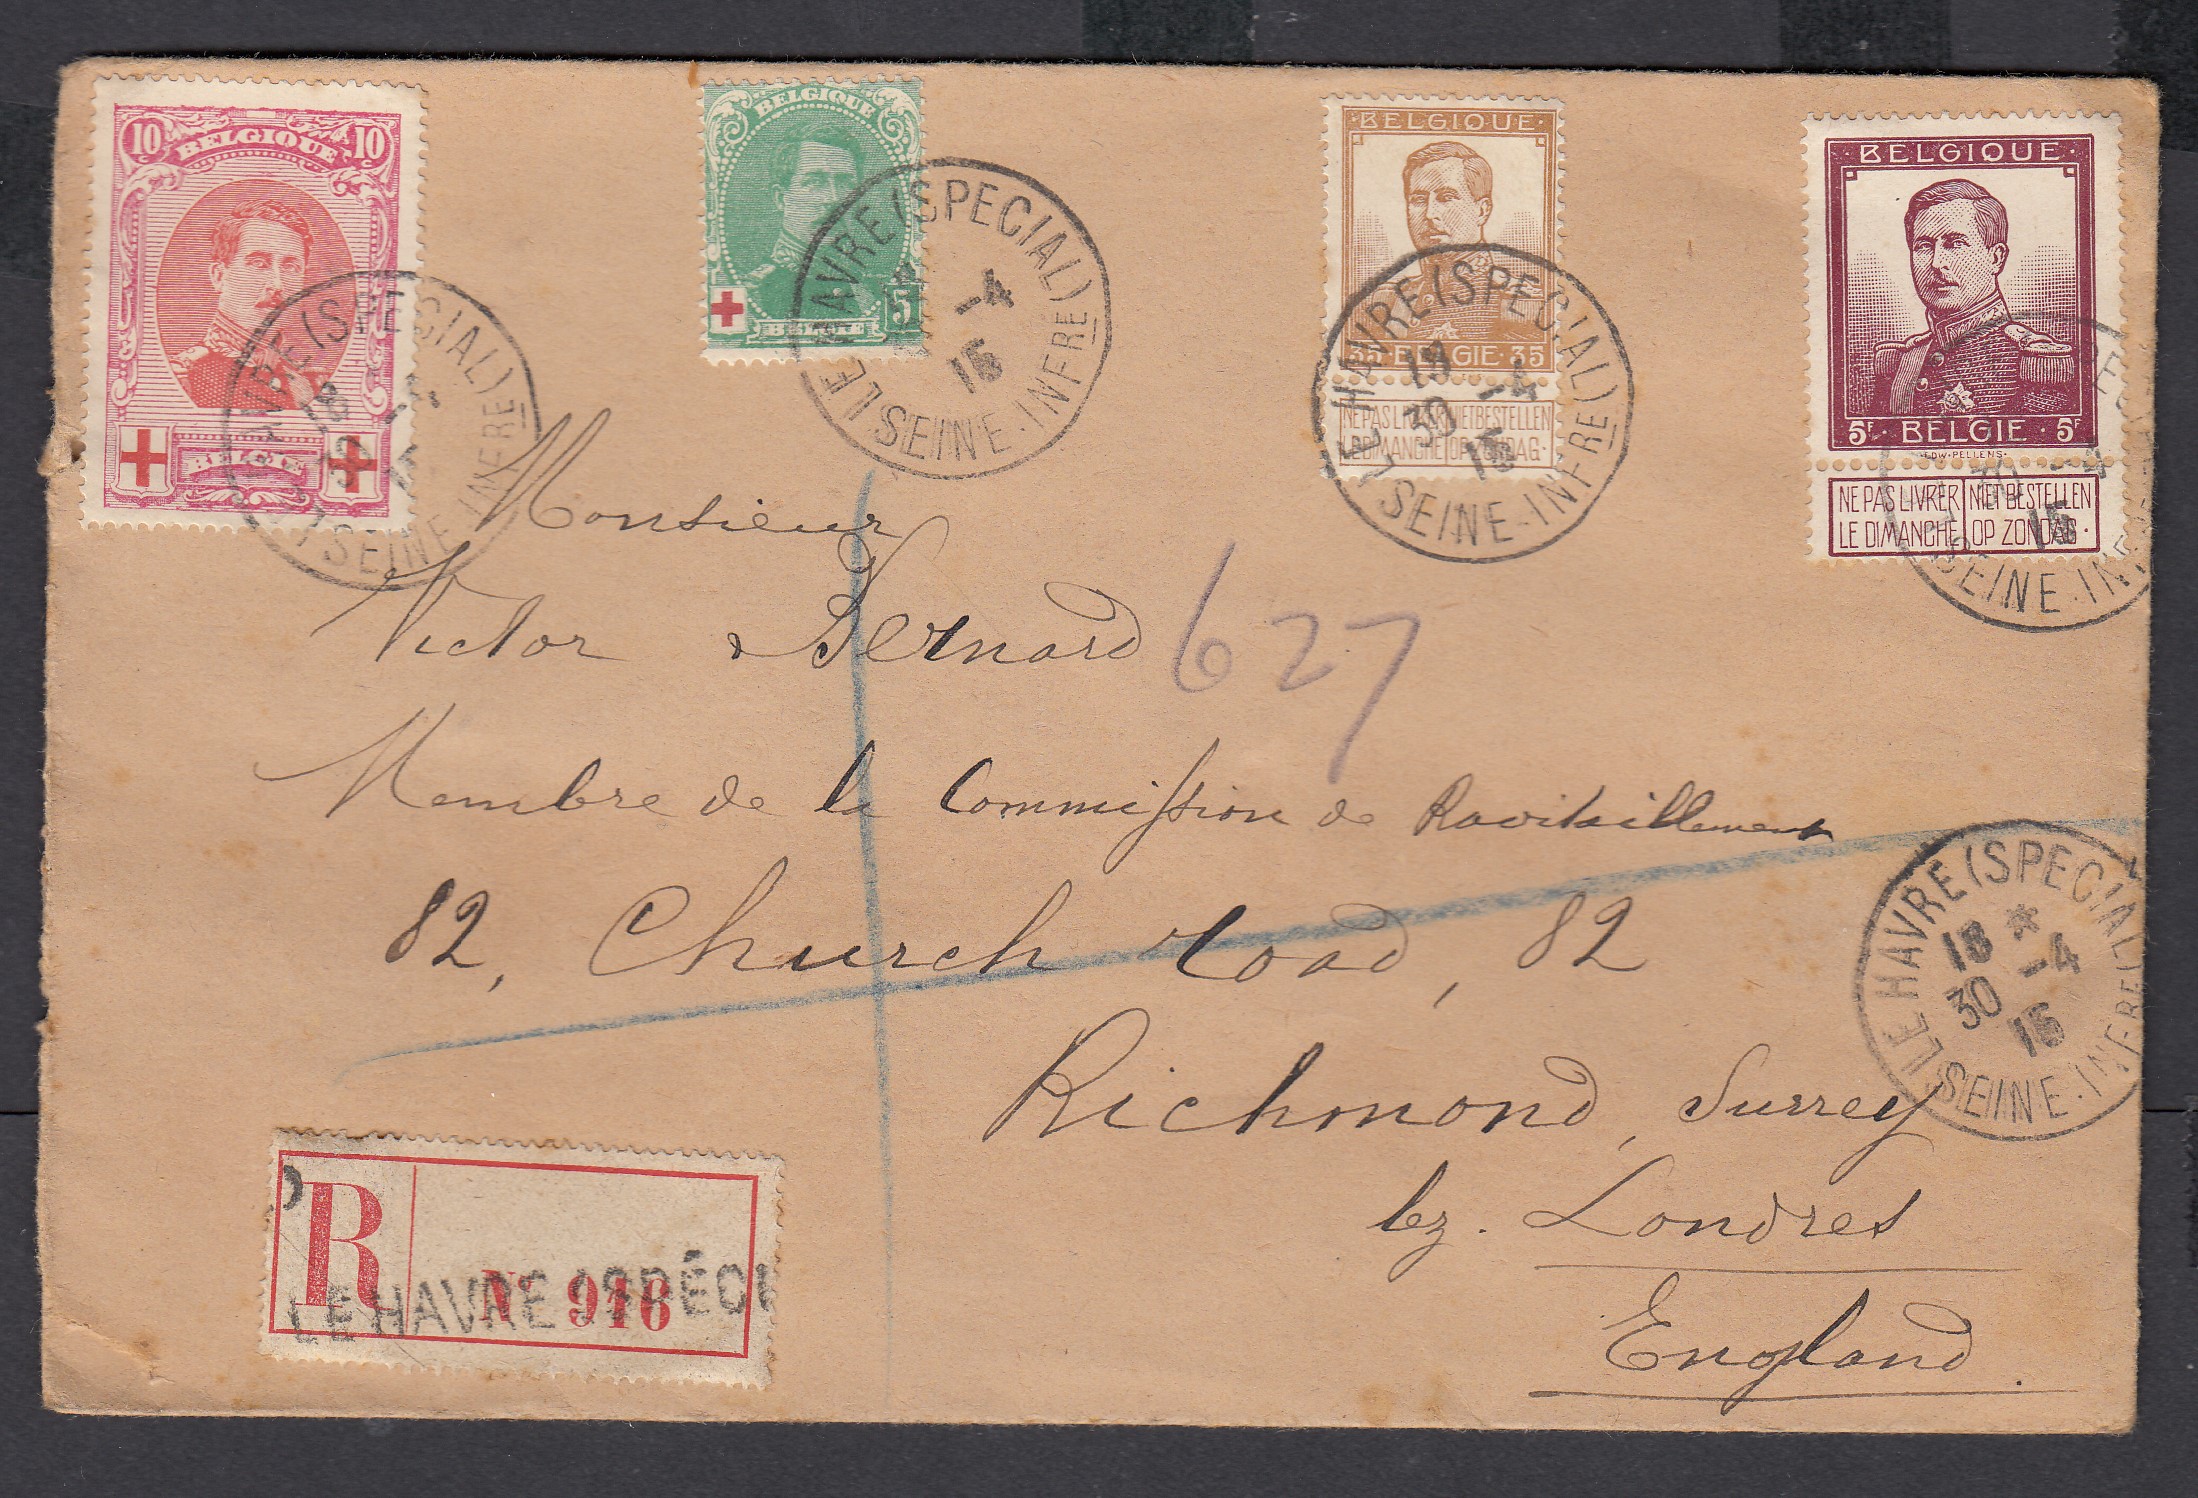 10 10
BELGIQUE
BELGIE
BELGIQUE
5
BELGIË
· BELGIQUE ·
35 · BELGIE · 35
NE PAS LIVRER LE DIMANCHE
NIET BESTELLEN OP ZONDAG ·
· BELGIQUE ·
5F · BELGIE · 5F
EDW·PELLENS·
NE PAS LIVRER LE DIMANCHE
NIET BESTELLEN OP ZONDAG ·
LE HAVRE (SPECIAL)
18
30 -4
15
SEINE-INFRE
LE HAVRE (SPECIAL)
-4
15
SEINE-INFRE
LE HAVRE (SPECIAL)
19
30 -4
15
SEINE-INFRE
30 -4
15
SEINE-INFRE
Monsieur
Victor Bernard
627
Membre de la Commission de Ravitaillement
82, Church road, 82
Richmond, Surrey
lez. Londres
England
LE HAVRE (SPECIAL)
18 *
30 -4
15
SEINE-INFRE
R
No 916
LE HAVRE (SPÉCI